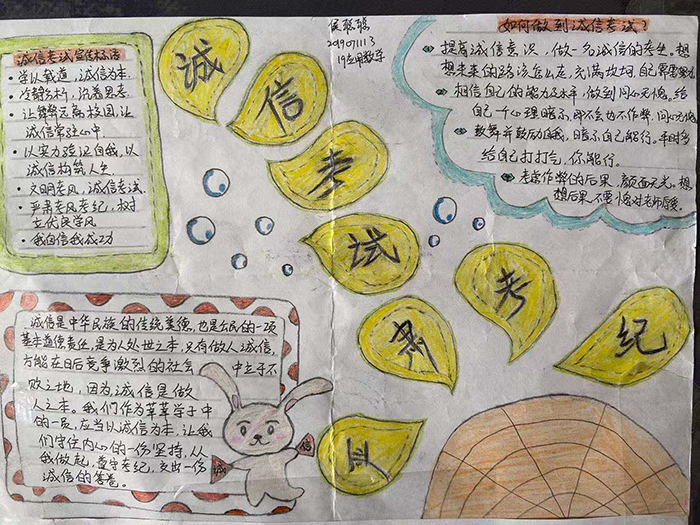 20190711113
19应用数学
诚信考试宣传标语
• 学以载道,诚信为本.
• 冷静分析,沉着思考
• 让舞弊远离校园,让
诚信常驻心中
• 以实力验证自我,以
诚信构筑人生
• 文明考风,诚信考试.
• 严肃考风考纪,树
立优良学风
• 我自信我成功
诚
信
考
试
严
肃
考
纪
如何做到诚信考试?
提高诚信意识,做一名诚信的考生,想
想未来的路该怎么走,充满坎坷,自己需要努力
相信自己的能力及水平,做到问心无愧。给
自己一个心理暗示,即不会也不作弊,问心无愧
鼓舞并鼓励自我,暗示自己能行。平时多
给自己打打气,你能行。
考虑作弊的后果,颜面无光。想
想后果,不要愧对老师厚爱
诚信是中华民族的传统美德,也是公民的一项
基本道德责任,是为人处世之本,只有做人诚信,
方能在日后竞争激烈的社会中立于不
败之地,因为诚信是做
人之本。我们作为莘莘学子中
的一员,应当以诚信为本,让我
们守住内心的一份坚持,从
我做起,遵守考纪,交出一份
诚信的答卷。
诚
信